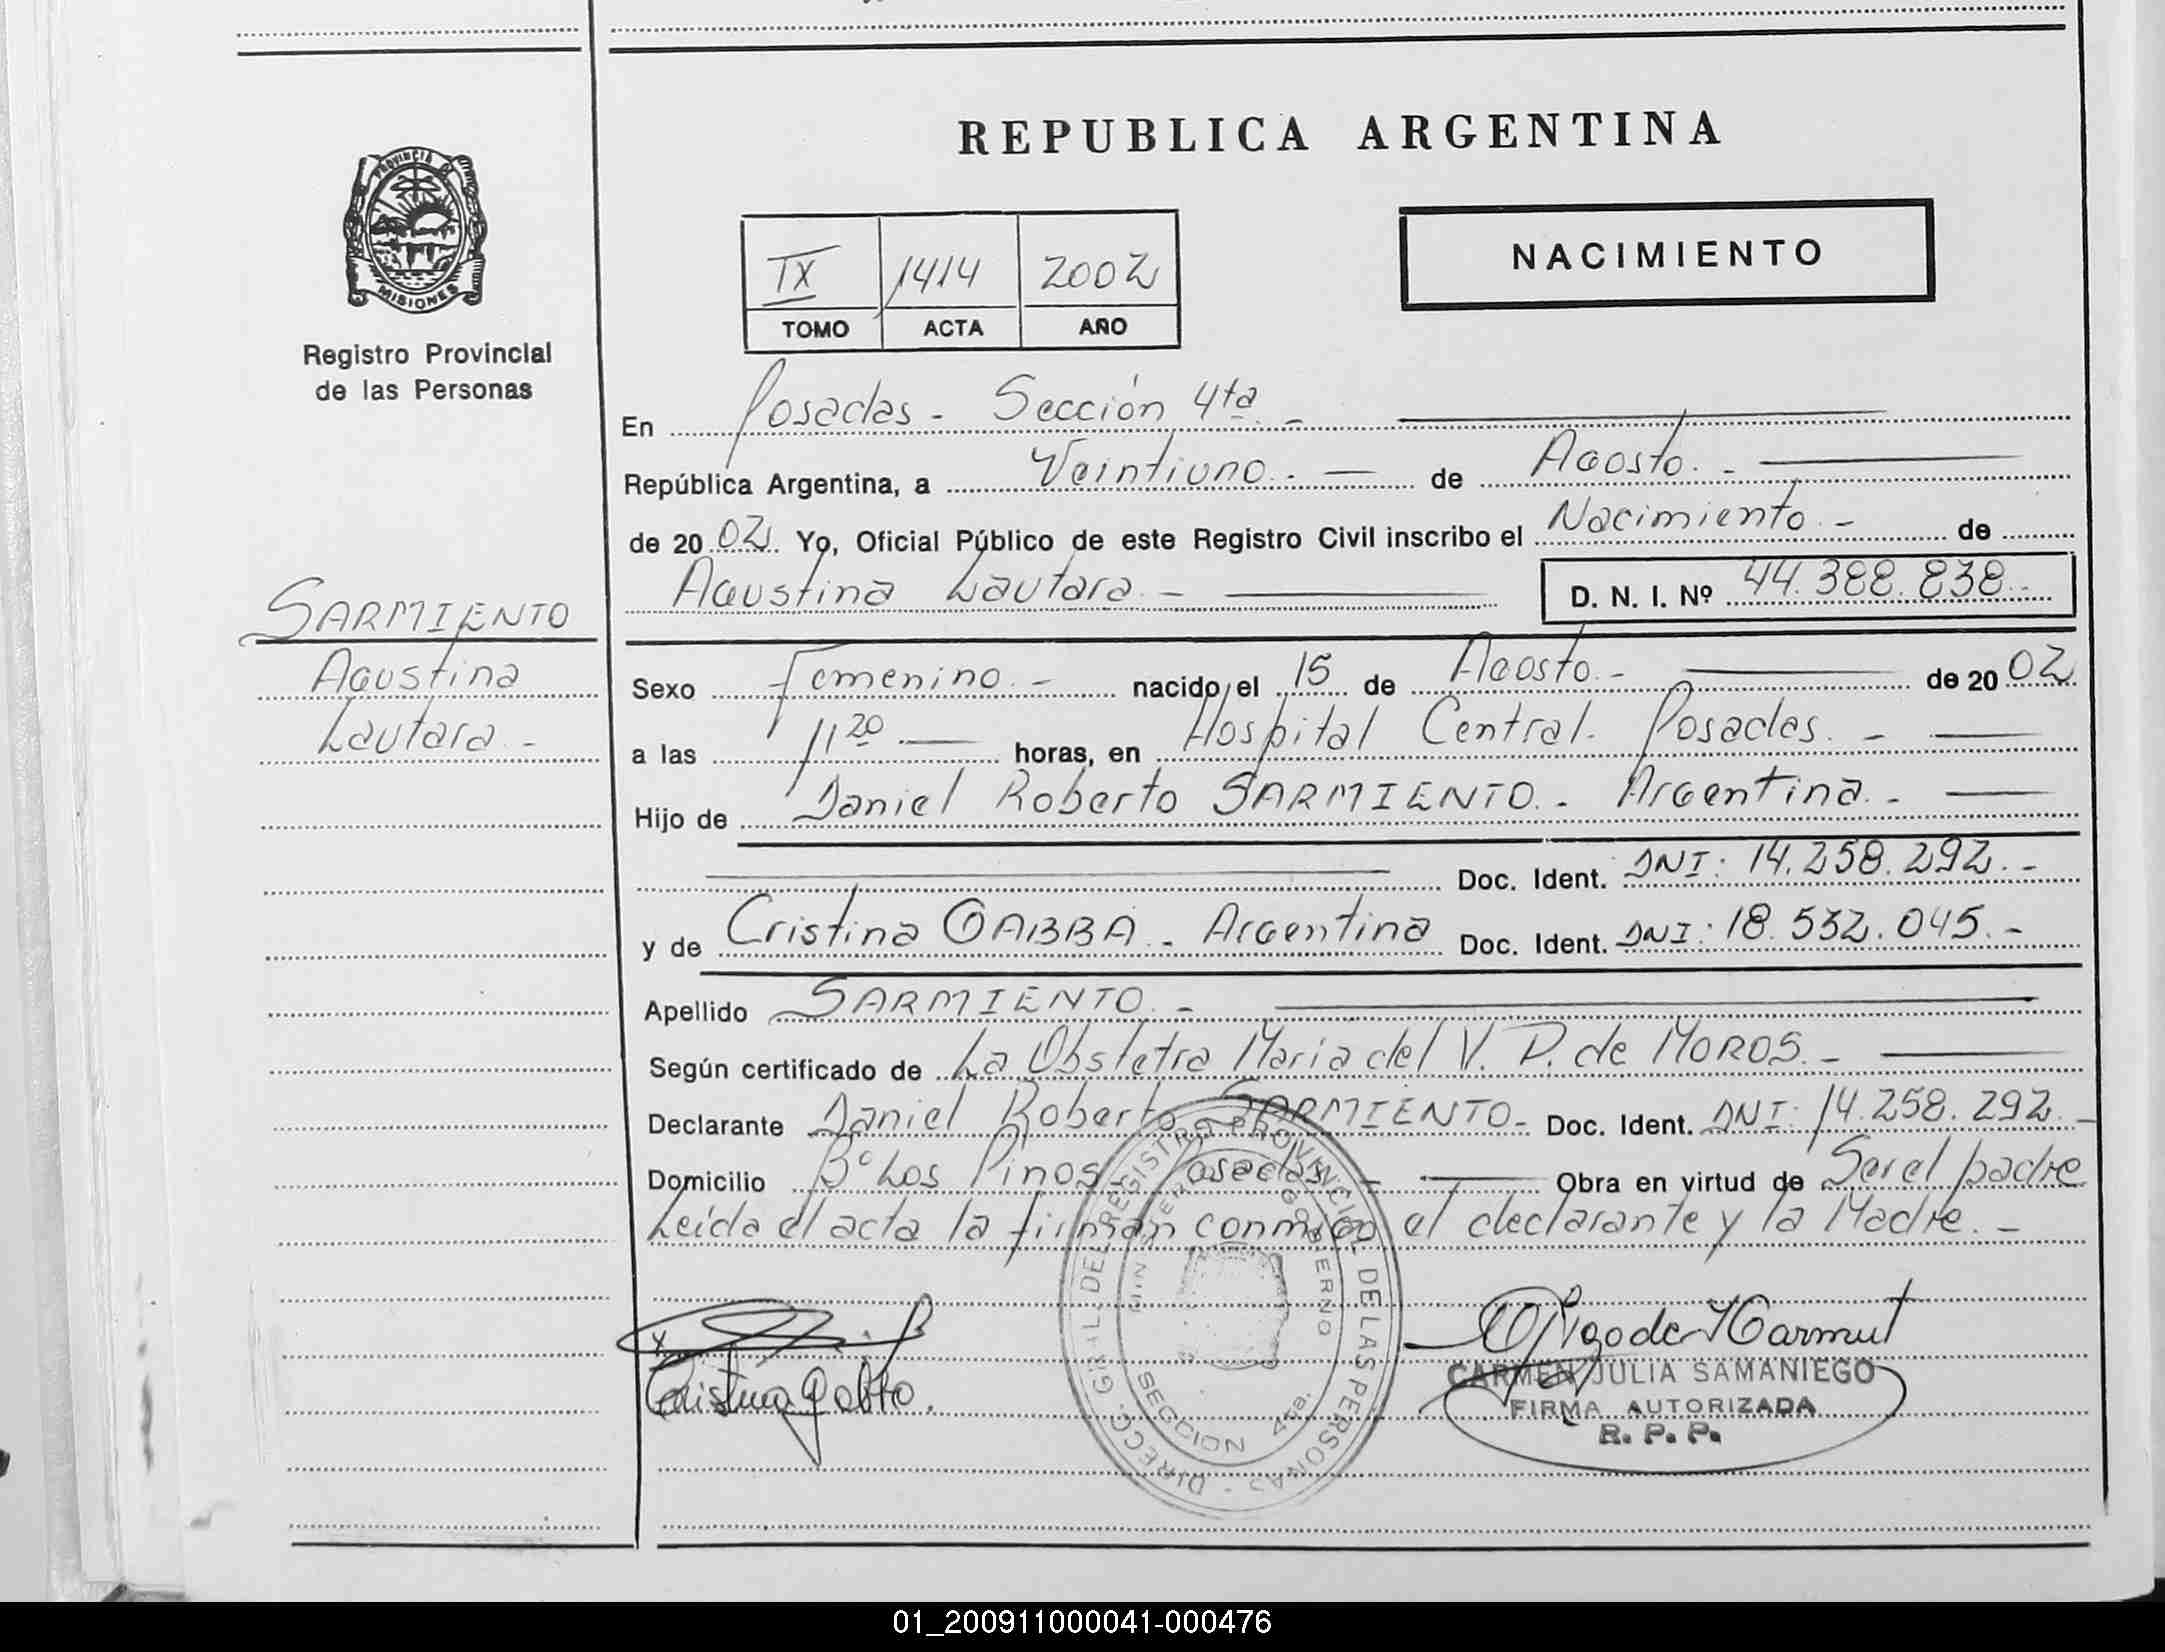 REPUBLICA ARGENTINA
PROVINCIA DE
MISIONES
Registro Provincial
de las Personas
IX 1414 2002
TOMO ACTA AÑO
NACIMIENTO
En Posadas - Sección 4ta. -
República Argentina, a Veintiuno. - de Agosto. -
de 2002 Yo, Oficial Público de este Registro Civil inscribo el Nacimiento. - de
Agustina Lautara. - D. N. I. Nº 44.388.838 -
SARMIENTO
Agustina
Lautara. -
Sexo Femenino. - nacido el 15 de Agosto. - de 2002
a las 11 20 horas, en Hospital Central. Posadas. -
Hijo de Daniel Roberto SARMIENTO. - Argentina. -
Doc. Ident. DNI: 14.258.292. -
y de Cristina GABBA. - Argentina Doc. Ident. DNI: 18.532.045. -
Apellido SARMIENTO. -
Según certificado de La Obstetra Maria del V. P. de MOROS. -
Declarante Daniel Roberto SARMIENTO - Doc. Ident. DNI: 14.258.292. -
Domicilio Bº Los Pinos - Posadas - Obra en virtud de Ser el padre
Leída el acta la firman conmigo el declarante y la Madre. -
DIRECC. GRAL. DEL REGISTRO PROVINCIAL DE LAS PERSONAS -
MINISTERIO GOBIERNO
SECCION 4ta.
CARMEN JULIA SAMANIEGO
FIRMA AUTORIZADA
R. P. P.
01_200911000041-000476